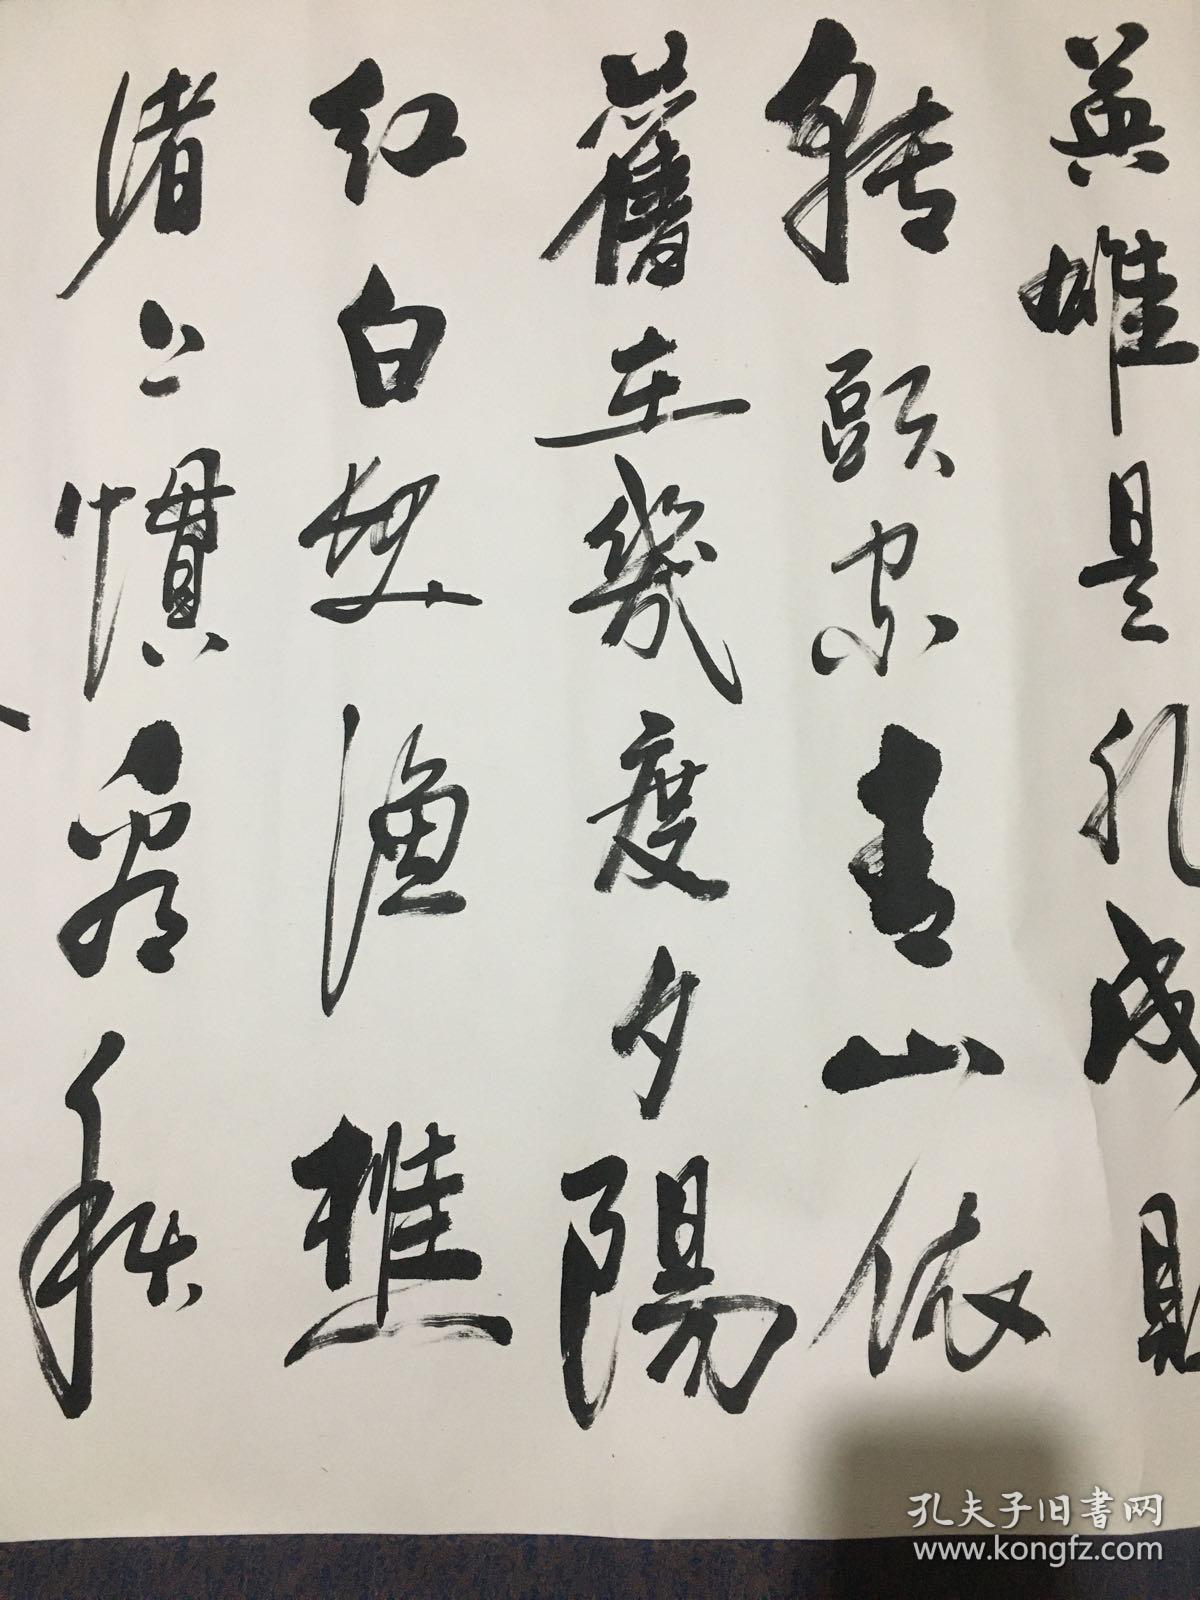 英雄是非成敗
轉頭空青山依
舊在幾度夕陽
紅白髮漁樵
渚上慣看秋
孔夫子旧書网
www.kongfz.com